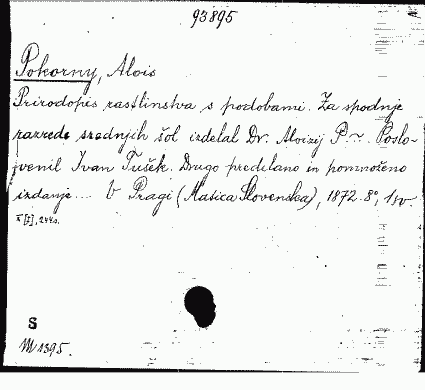 93895
Pokorny, Alois
Prirodopis rastlinstva s podobami. Za spodnje
razrede srednjih šol izdelal Dr. Aloizij P~. Poslo-
venil Ivan Tušek. Drugo predelano in pomnoženo
izdanje... V Pragi (Matica Slovenska), 1872. 8°, 1 sv
S
M 1395.